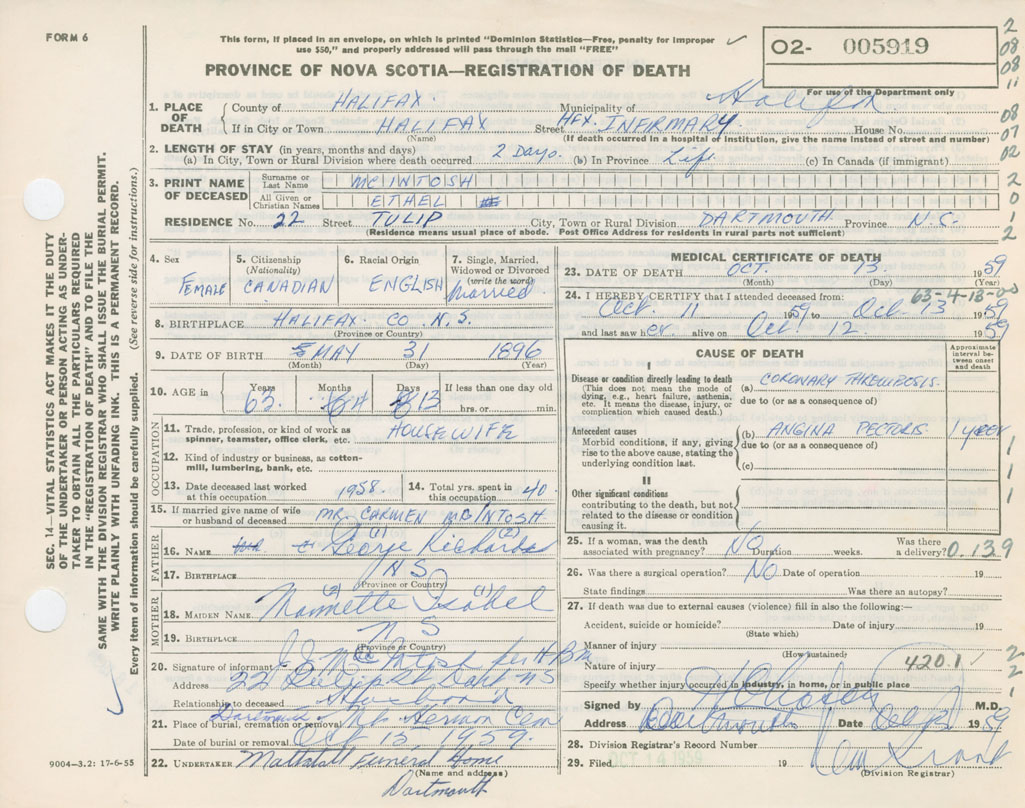 FORM 6
This form, if placed in an envelope, on which is printed "Dominion Statistics—Free, penalty for improper
use $50," and properly addressed will pass through the mail "FREE"
PROVINCE OF NOVA SCOTIA—REGISTRATION OF DEATH
O2- 005919
For use of the Department only
2
08
08
11
08
07
02
2
0
1
2
SEC. 14—VITAL STATISTICS ACT MAKES IT THE DUTY
OF THE UNDERTAKER OR PERSON ACTING AS UNDER-
TAKER TO OBTAIN ALL THE PARTICULARS REQUIRED
IN THE "REGISTRATION OF DEATH" AND TO FILE THE
SAME WITH THE DIVISION REGISTRAR WHO SHALL ISSUE THE BURIAL PERMIT.
WRITE PLAINLY WITH UNFADING INK. THIS IS A PERMANENT RECORD.
Every item of information should be carefully supplied. (See reverse side for instructions.)
1. PLACE OF DEATH County of HALIFAX. Municipality of Halifax
If in City or Town HALIFAX Street HFX. INFIRMARY House No.
(Name) (If death occurred in a hospital or institution, give the name instead of street and number)
2. LENGTH OF STAY (in years, months and days)
(a) In City, Town or Rural Division where death occurred 2 Days. (b) In Province Life (c) In Canada (if immigrant)
3. PRINT NAME OF DECEASED Surname or Last Name MCINTOSH
All Given or Christian Names ETHEL
RESIDENCE No. 22 Street TULIP City, Town or Rural Division DARTMOUTH Province N.S.
(Residence means usual place of abode. Post Office Address for residents in rural parts not sufficient)
4. Sex FEMALE
5. Citizenship (Nationality) CANADIAN
6. Racial Origin ENGLISH
7. Single, Married, Widowed or Divorced (write the word) Married
8. BIRTHPLACE HALIFAX CO N.S.
(Province or Country)
9. DATE OF BIRTH MAY 31 1896
(Month) (Day) (Year)
10. AGE in Years 63 Months 4 Days 13 If less than one day old
hrs. or min.
OCCUPATION
11. Trade, profession, or kind of work as
spinner, teamster, office clerk, etc. HOUSEWIFE
12. Kind of industry or business, as cotton-
mill, lumbering, bank, etc.
13. Date deceased last worked at this occupation 1958. 14. Total yrs. spent in this occupation 40
15. If married give name of wife
or husband of deceased MR. CARMEN MCINTOSH
FATHER
16. NAME George (1) Richards (2)
17. BIRTHPLACE NS
(Province or Country)
MOTHER
18. MAIDEN NAME (2) Isabel (1)
19. BIRTHPLACE NS
(Province or Country)
20. Signature of informant C J McIntosh per
Address 22 Tulip St Dart NS
Relationship to deceased Husband
21. Place of burial, cremation or removal Dartmouth - Mt. Hermon Cem
Date of burial or removal Oct 15, 1959.
22. UNDERTAKER Mattatall Funeral Home
(Name and address)
Dartmouth
9004-3.2: 17-6-55
MEDICAL CERTIFICATE OF DEATH
23. DATE OF DEATH OCT. 13. 1959
(Month) (Day) (Year)
63-4-13-00
24. I HEREBY CERTIFY that I attended deceased from:
Oct. 11 1959 to Oct 13 1959
and last saw her alive on Oct. 12 1959
CAUSE OF DEATH
Approximate
interval be-
tween onset
and death
I
Disease or condition directly leading to death
(This does not mean the mode of
dying, e.g., heart failure, asthenia,
etc. It means the disease, injury, or
complication which caused death.)
(a) CORONARY THROMBOSIS.
due to (or as a consequence of)
Antecedent causes
Morbid conditions, if any, giving
rise to the above cause, stating the
underlying condition last.
(b) ANGINA PECTORIS 1 year
due to (or as a consequence of)
(c)
II
Other significant conditions
contributing to the death, but not
related to the disease or condition
causing it.
1
1
1
25. If a woman, was the death
associated with pregnancy? NO Duration weeks. Was there
a delivery? 0.139
26. Was there a surgical operation? NO Date of operation 19
State findings Was there an autopsy?
27. If death was due to external causes (violence) fill in also the following:—
Accident, suicide or homicide? Date of injury 19
(State which)
Manner of injury
(How sustained)
Nature of injury 420.1
2
2
1
Specify whether injury occurred in industry, in home, or in public place
Signed by M.D.
Address Dartmouth Date Oct 13 1959
28. Division Registrar's Record Number
29. Filed OCT 14 1959 19
(Division Registrar)